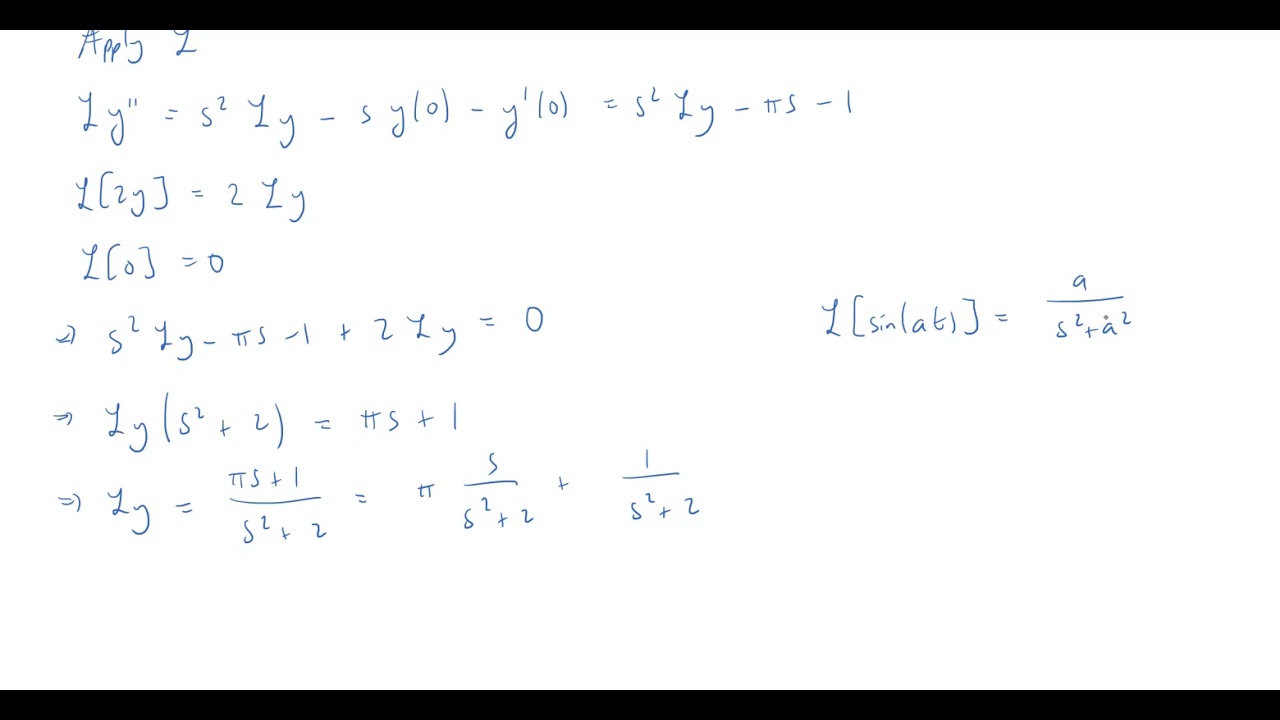 Apply ℒ
ℒy'' = s² ℒy - s y(0) - y'(0) = s² ℒy - πs - 1
ℒ[2y] = 2 ℒy
ℒ[0] = 0
⇒ s² ℒy - πs - 1 + 2 ℒy = 0
ℒ[sin(at)] = a/(s²+a²)
⇒ ℒy(s² + 2) = πs + 1
⇒ ℒy = (πs + 1)/(s² + 2) = π s/(s² + 2) + 1/(s² + 2)